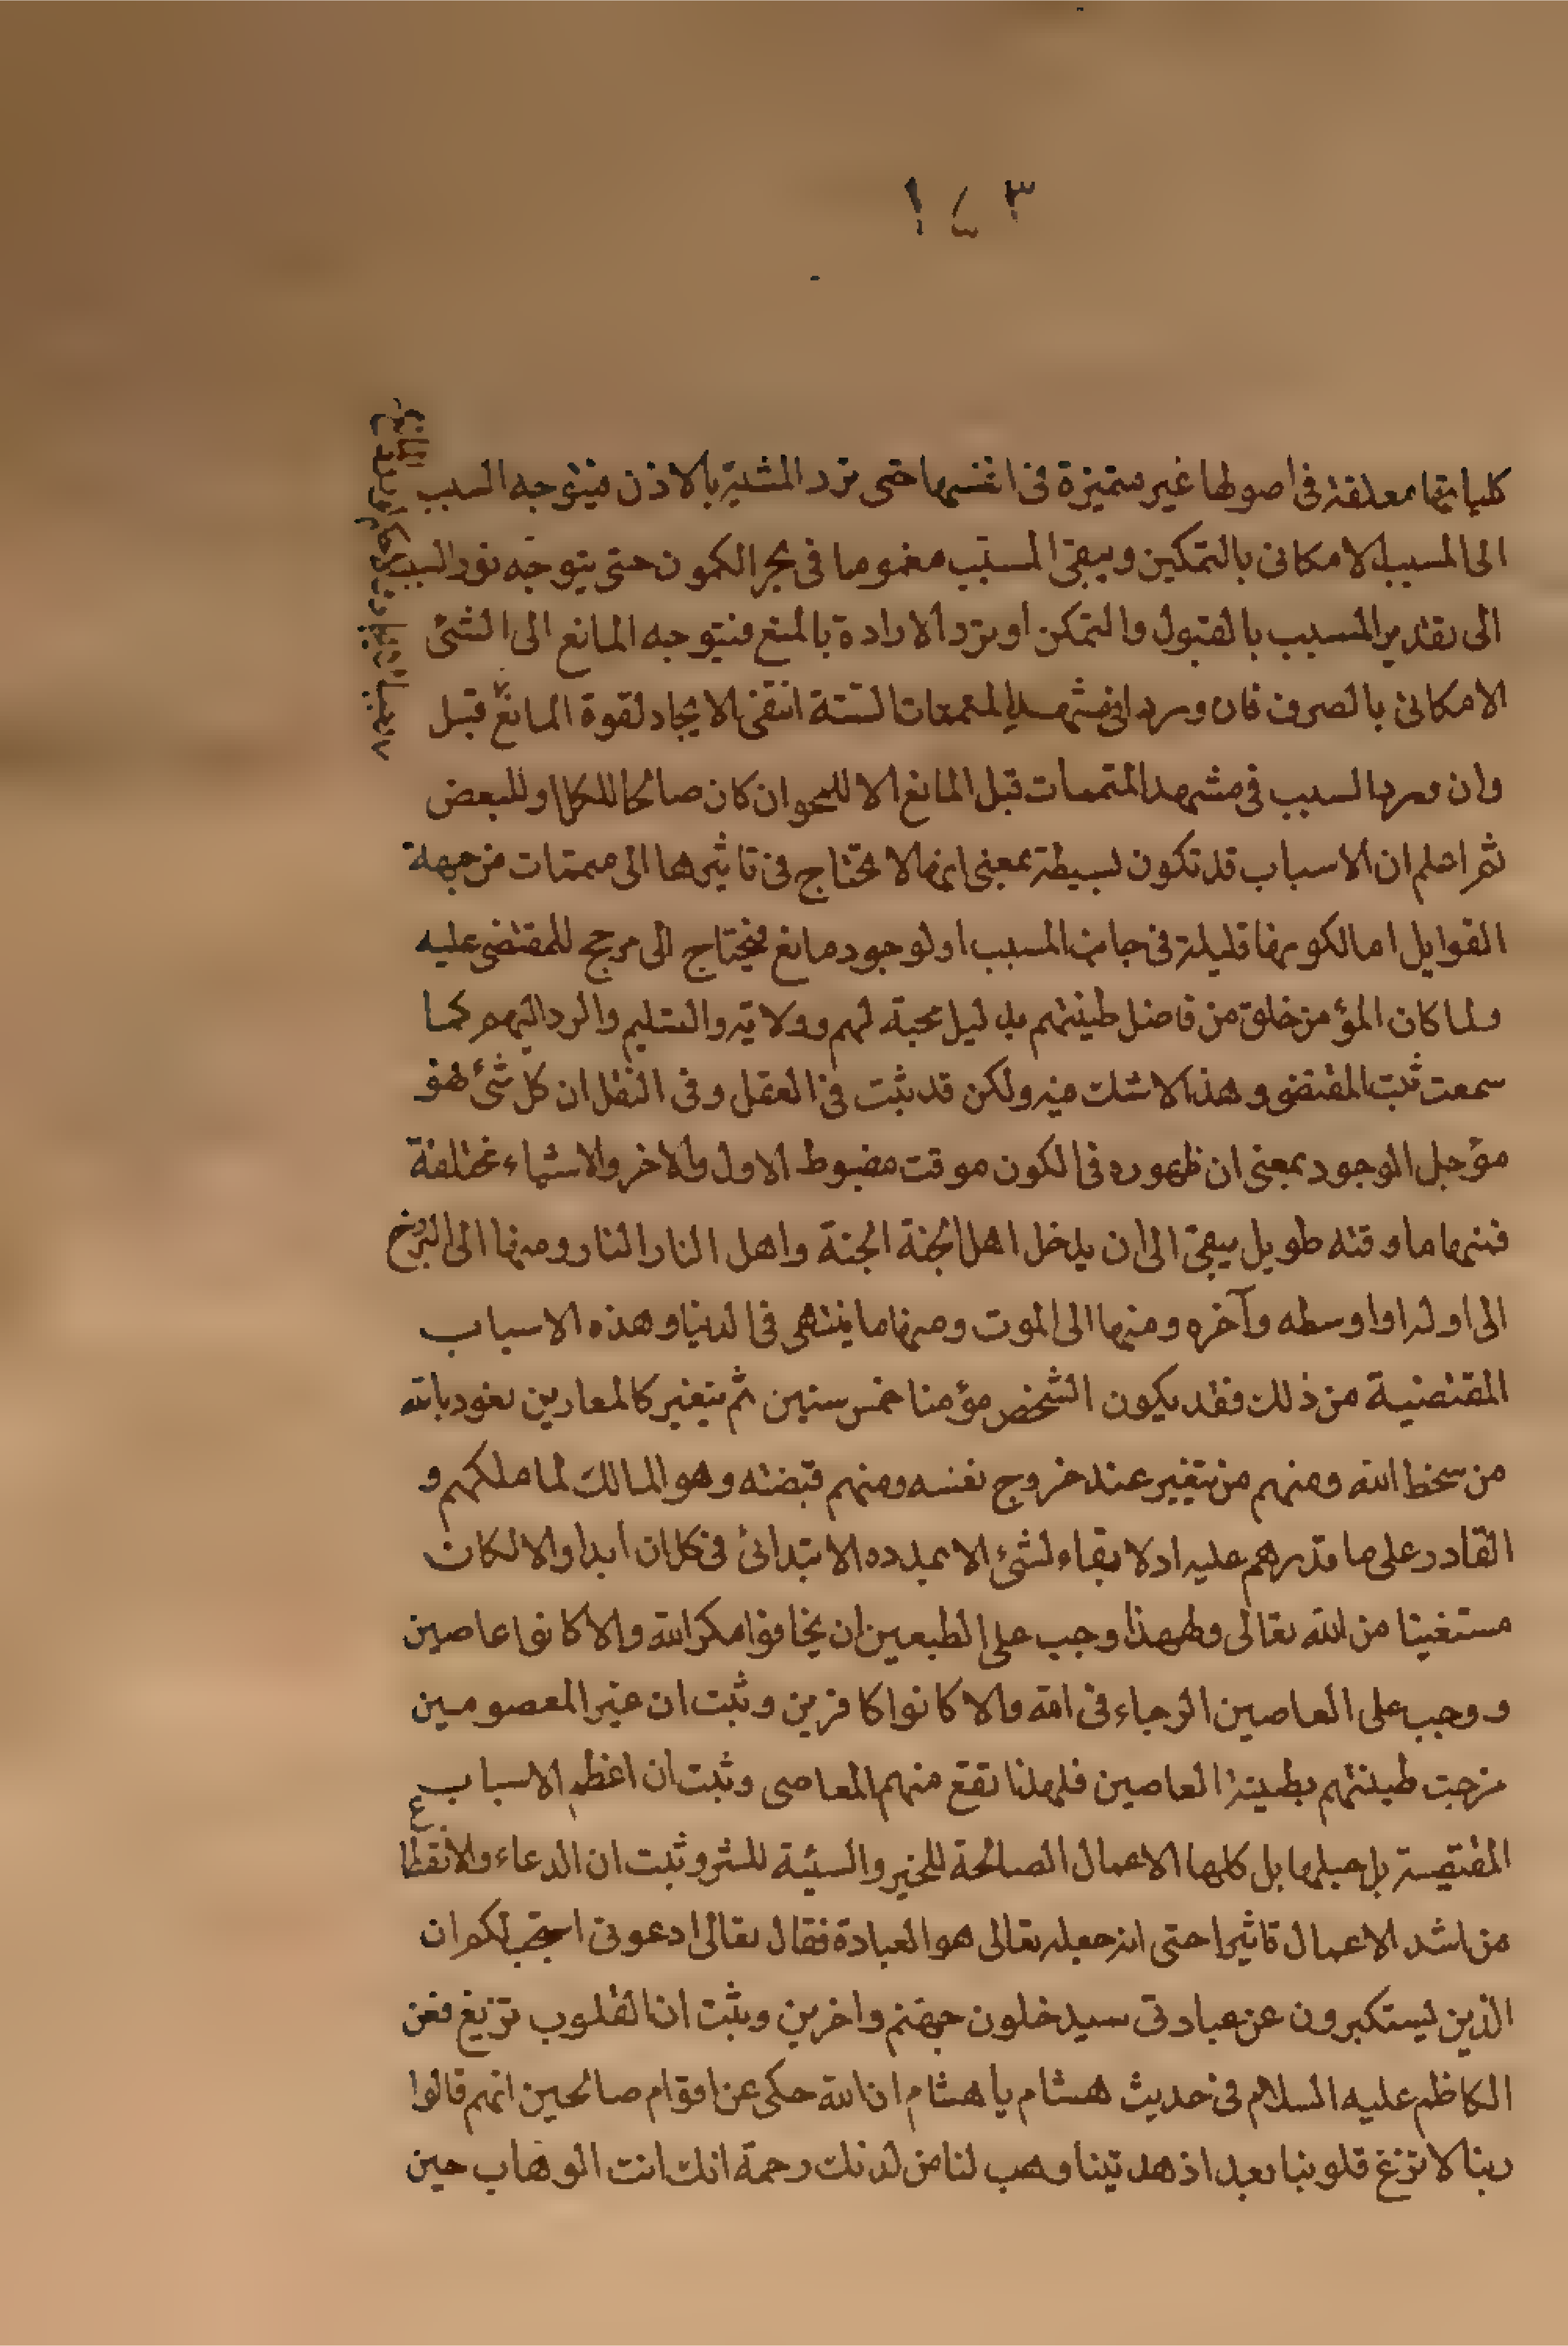 ١٤٣
كلياتها معلقة فى اصولها غير متميزة فى انفسها حتى ترد المشية بالاذن فيتوجه السبب
الى المسبب الامكانى بالتمكين ويبقى المسبب مغموما فى بحر الكمون حتى يتوجه نور السبب
الى تقدير المسبب بالقبول والتمكن او ترد الارادة بالمنع فيتوجه المانع الى الشئ
الامكانى بالصرف فان ورد فى مشهد المتممات الستة انتفى الايجاد لقوة المانع قبل
وان ورد السبب فى مشهد المتممات قبل المانع الا للمحو ان كان صالحا للكل او للبعض
ثم اعلم ان الاسباب قد تكون بسيطة بمعنى انها لا تحتاج فى تاثيرها الى متممات من جهة
القوابل اما لكونها قليلة فى جانب المسبب او لوجود مانع فيحتاج الى مرجح للمقتضى عليه
ولما كان المؤمن خلق من فاضل طينتهم بدليل محبة لهم وولاية والتسليم والرد اليهم كما
سمعت ثبت المقتضى وهذا لا شك فيه ولكن قد ثبت فى العقل وفى النقل ان كل شئ فهو
مؤجل الوجود بمعنى ان ظهوره فى الكون موقت مضبوط الاول والاخر والاشياء مختلفة
فمنها ما وقته طويل يبقى الى ان يدخل اهل الجنة الجنة واهل النار النار ومنها الى البرزخ
الى اوله او اوسطه وآخره ومنها الى الموت ومنها ما ينتهى فى الدنيا وهذه الاسباب
المقتضية من ذلك فقد يكون الشخص مؤمنا خمس سنين ثم يتغير كالمعارين نعوذ بالله
من سخط الله ومنهم من يتغير عند خروج نفسه ومنهم قبضته وهو المالك لما ملكهم و
القادر على ما قدرهم عليه اذ لا بقاء لشئ الا بمدده الابتدائى فى كل ان ابدا والا لكان
مستغنيا من الله تعالى ولهذا وجب على المطيعين ان يخافوا مكر الله والا كانوا عاصين
ووجب على العاصين الرجاء فى الله والا كانوا كافرين وثبت ان غير المعصومين
مزجت طينتهم بطينة العاصين فلهذا تقع منهم المعاصى وثبت ان اعظم الاسباب
المقتضية بل جلها بل كلها الاعمال الصالحة للخير والسيئة للشر وثبت ان الدعاء والانقطاع
من اشد الاعمال تاثيرا حتى انه جعله تعالى هو العبادة فقال تعالى ادعونى استجب لكم ان
الذين يستكبرون عن عبادتى سيدخلون جهنم داخرين وثبت ان القلوب تزيغ فعن
الكاظم عليه السلام فى حديث هشام يا هشام ان الله حكى عن اقوام صالحين انهم قالوا
ربنا لا تزغ قلوبنا بعد اذ هديتنا وهب لنا من لدنك رحمة انك انت الوهاب حين